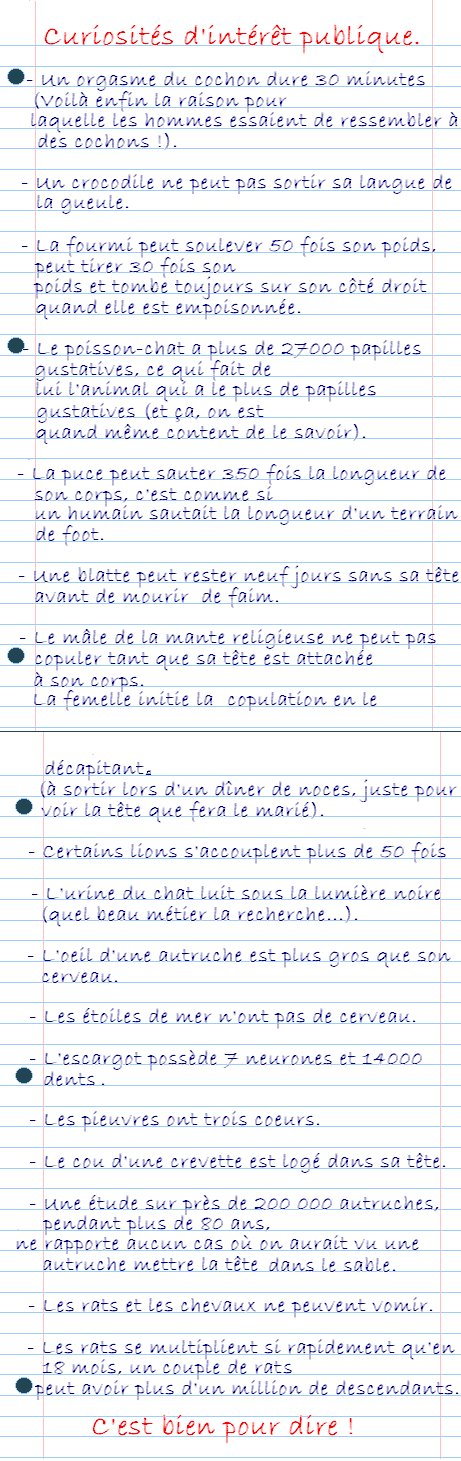 Curiosités d'intérêt publique.
- Un orgasme du cochon dure 30 minutes
(Voilà enfin la raison pour
laquelle les hommes essaient de ressembler à
des cochons !).
- Un crocodile ne peut pas sortir sa langue de
la gueule.
- La fourmi peut soulever 50 fois son poids,
peut tirer 30 fois son
poids et tombe toujours sur son côté droit
quand elle est empoisonnée.
- Le poisson-chat a plus de 27000 papilles
gustatives, ce qui fait de
lui l'animal qui a le plus de papilles
gustatives (et ça, on est
quand même content de le savoir).
- La puce peut sauter 350 fois la longueur de
son corps, c'est comme si
un humain sautait la longueur d'un terrain
de foot.
- Une blatte peut rester neuf jours sans sa tête
avant de mourir de faim.
- Le mâle de la mante religieuse ne peut pas
copuler tant que sa tête est attachée
à son corps.
La femelle initie la copulation en le
décapitant.
(à sortir lors d'un dîner de noces, juste pour
voir la tête que fera le marié).
- Certains lions s'accouplent plus de 50 fois
- L'urine du chat luit sous la lumière noire
(quel beau métier la recherche...).
- L'oeil d'une autruche est plus gros que son
cerveau.
- Les étoiles de mer n'ont pas de cerveau.
- L'escargot possède 7 neurones et 14000
dents .
- Les pieuvres ont trois coeurs.
- Le cou d'une crevette est logé dans sa tête.
- Une étude sur près de 200 000 autruches,
pendant plus de 80 ans,
ne rapporte aucun cas où on aurait vu une
autruche mettre la tête dans le sable.
- Les rats et les chevaux ne peuvent vomir.
- Les rats se multiplient si rapidement qu'en
18 mois, un couple de rats
peut avoir plus d'un million de descendants.
C'est bien pour dire !